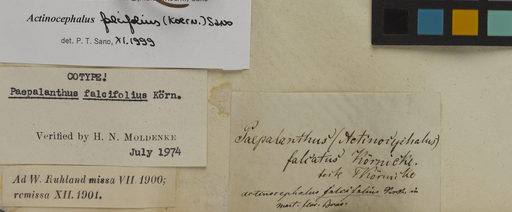 Actinocephalus falcifolius (Koern.) Sano
det. P. T. Sano, XI.1999
COTYPE!
Paepalanthus falcifolius Körn.
Verified by H. N. MOLDENKE
July 1974
Ad W. Ruhland missa VII 1900;
remissa XII. 1901.
Paepalanthus (Actinocephalus)
falcatus Körnicke.
Körnicke
Actinocephalus falcifolius
Mart. Flor. Bras.